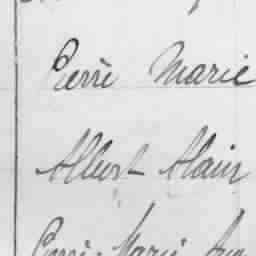 Pierre Marie
Albert Alain
Marie